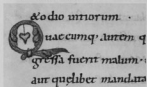 & odio uitiorum ·
Quaecumq; autem q
gressa fuerit malum ·
aut quęlibet mandata